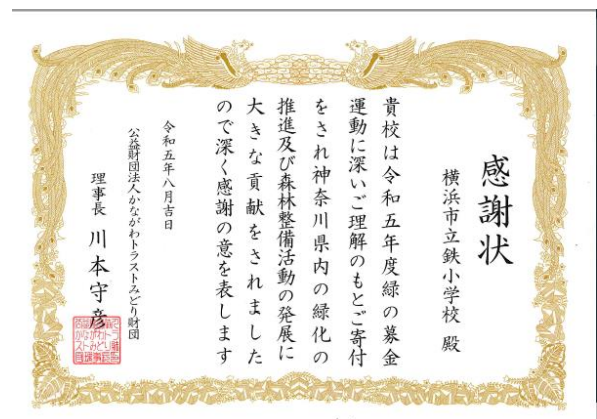 感謝状
横浜市立鉄小学校 殿
貴校は令和五年度緑の募金
運動に深いご理解のもとご寄付
をされ神奈川県内の緑化の
推進及び森林整備活動の発展に
大きな貢献をされました
ので深く感謝の意を表します
令和五年八月吉日
公益財団法人かながわトラストみどり財団
理事長 川本守彦